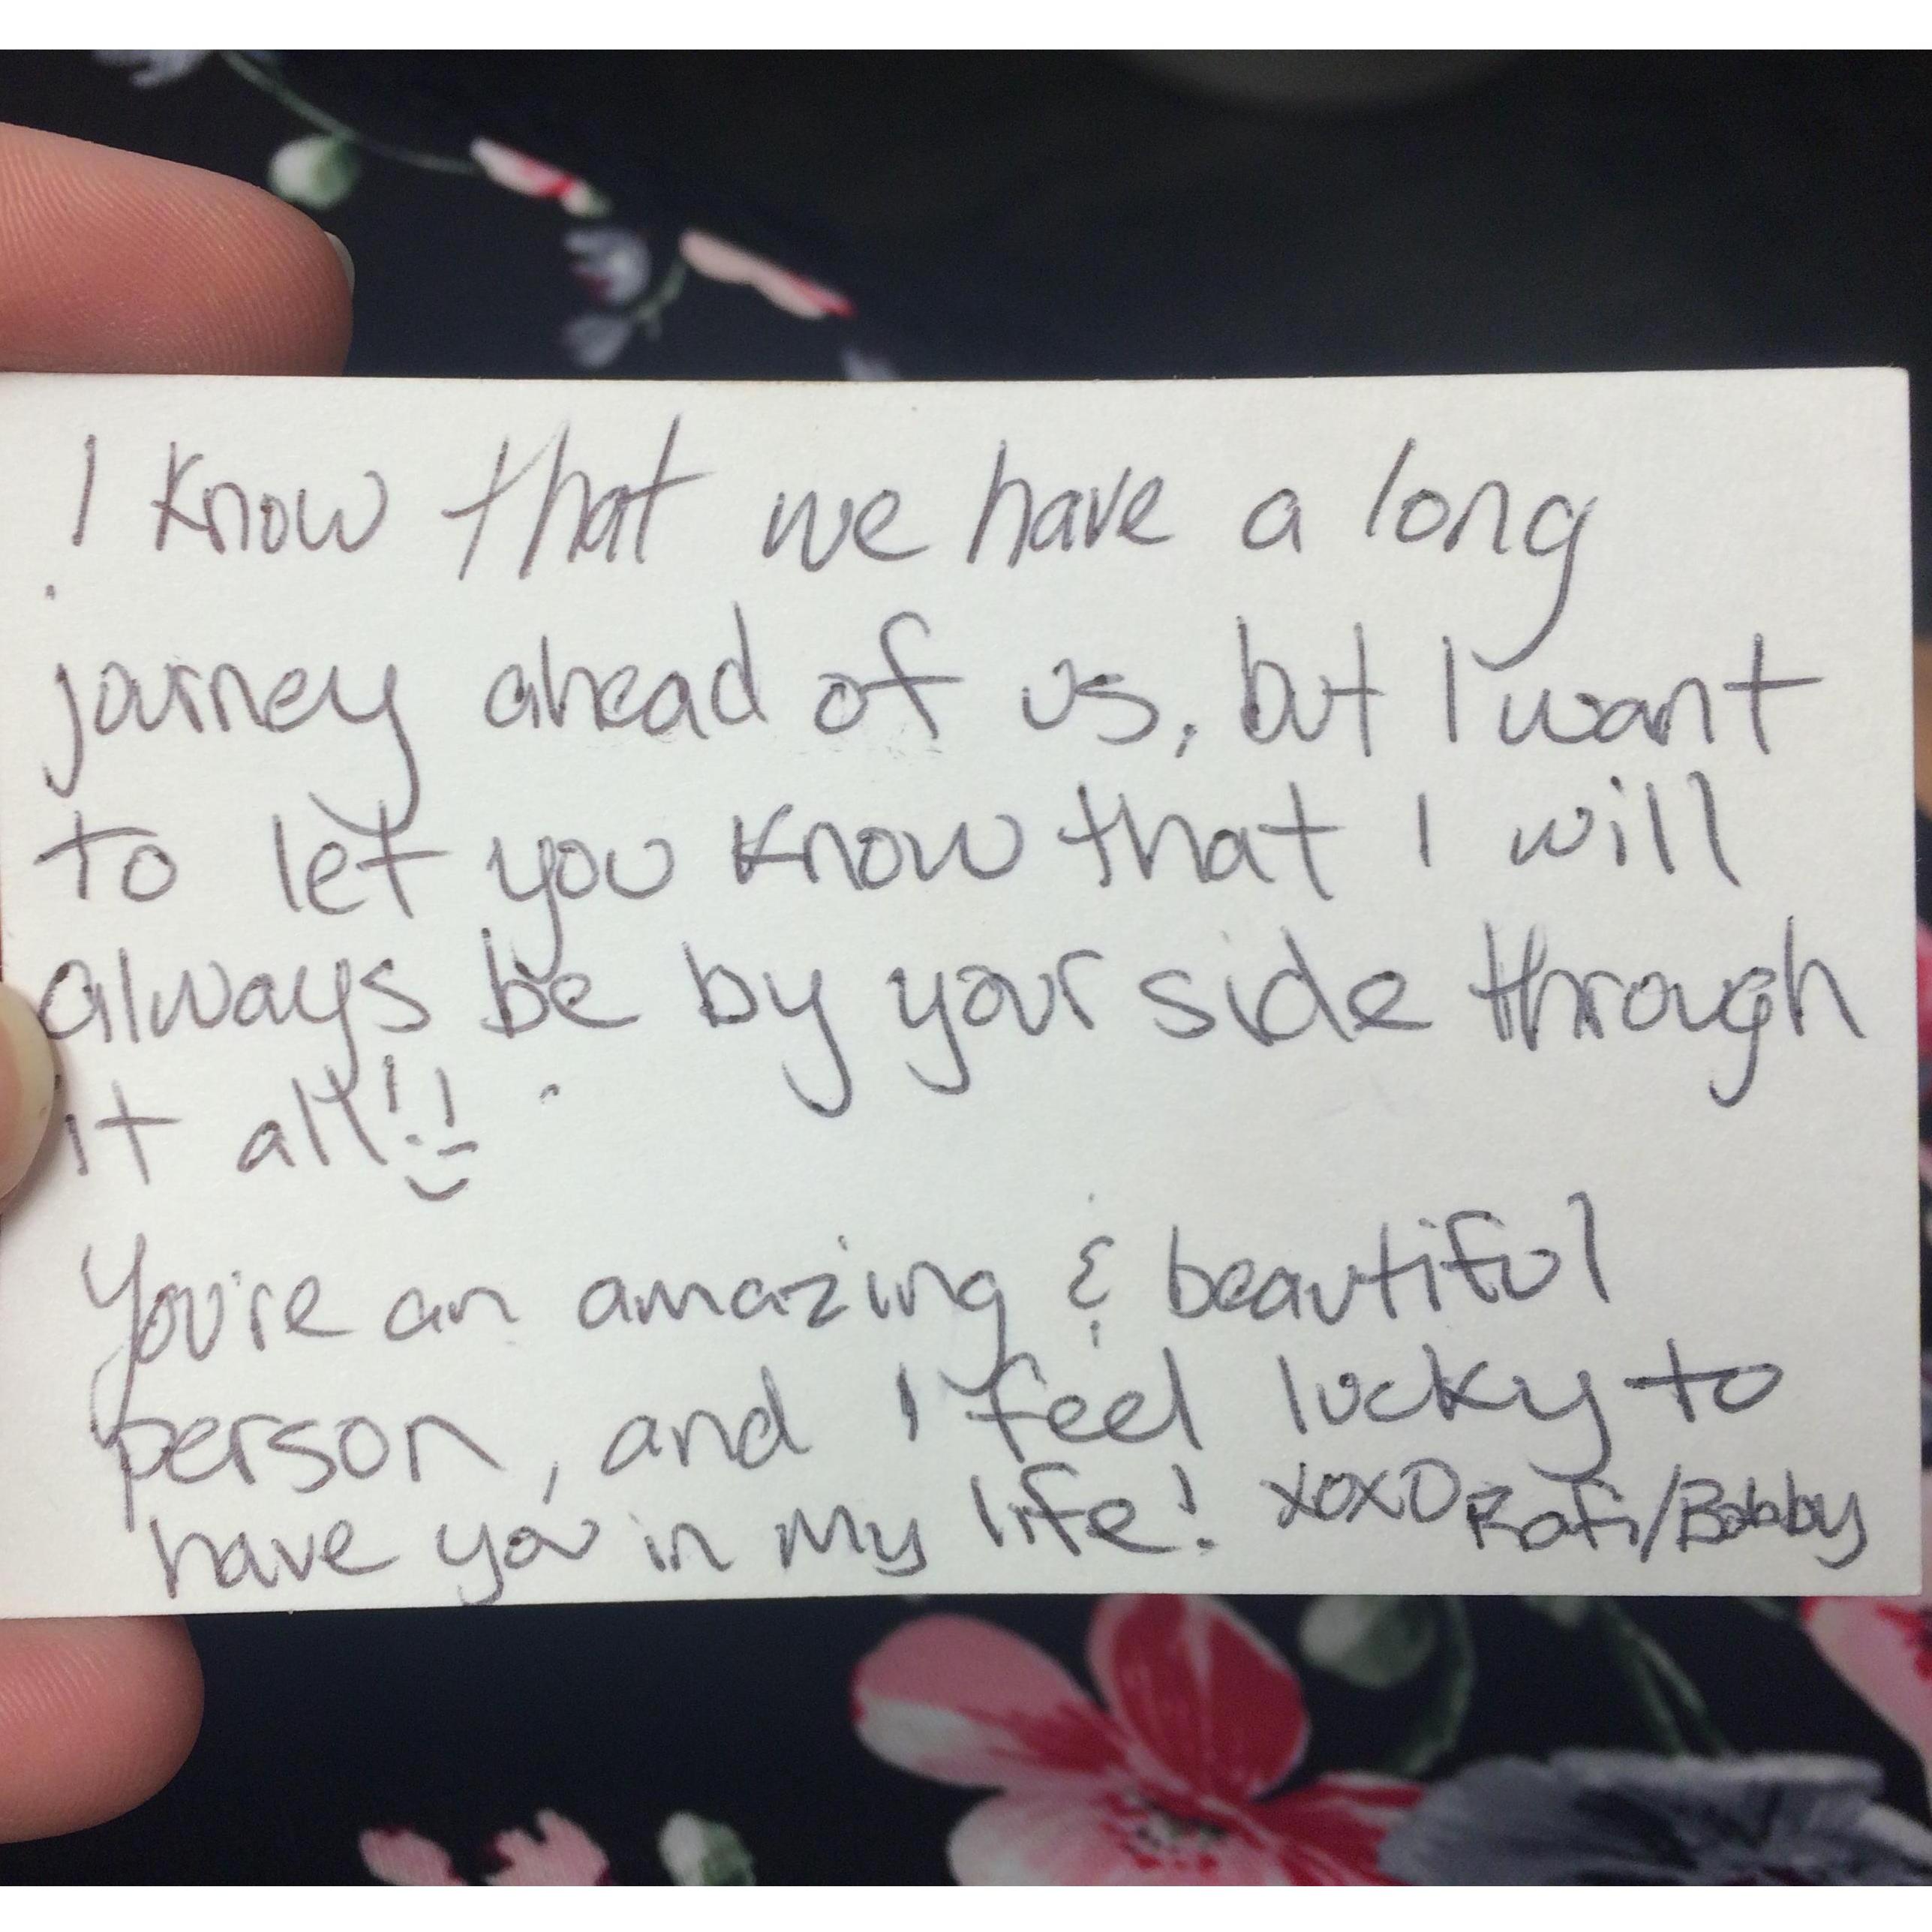 I know that we have a long
journey ahead of us, but I want
to let you know that I will
always be by your side through
it all!!
You're an amazing & beautiful
person, and I feel lucky to
have you in my life! XOXO Rafi/Bobby